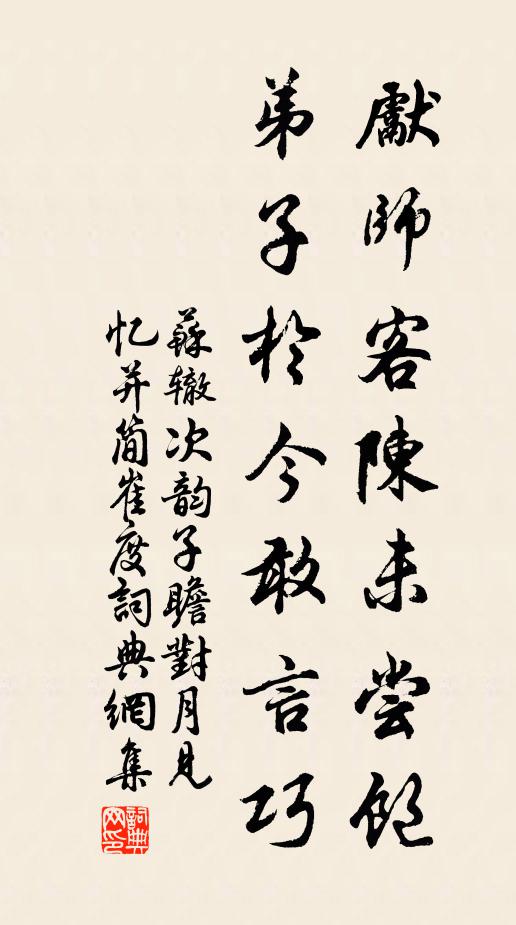 獻師客陳未尝飽
弟子於今敢言巧
蘇辙次韵子瞻對月見
忆并簡崔度詞典網集
詞典
网印